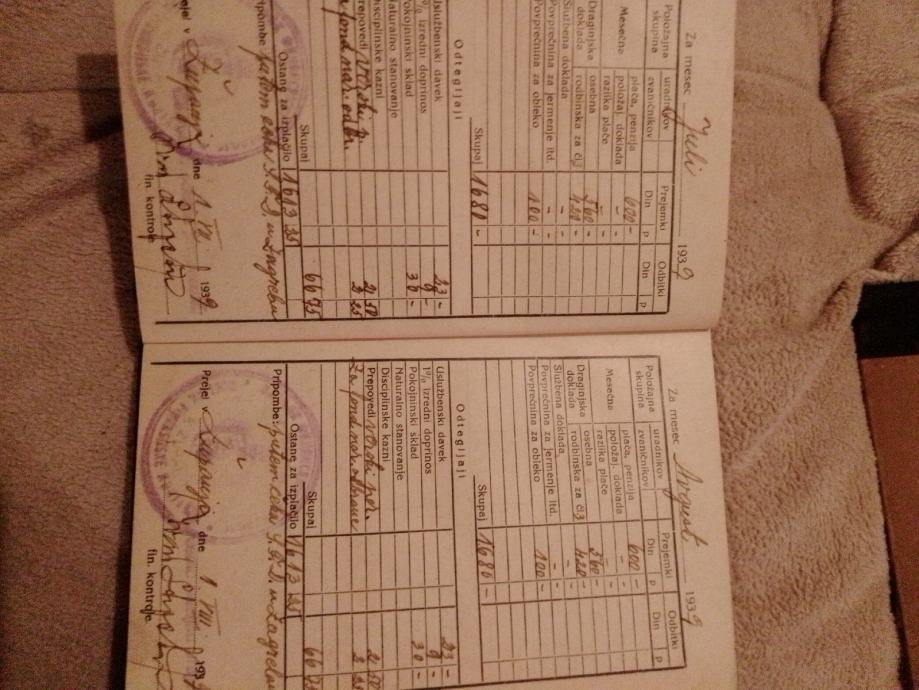 Za mesec Juli 1939
Položajna skupina
uradnikov
zvaničnikov
Prejemki
Odbitki
Din p Din p
Mesečne
plača, penzija 600 -
položaj. doklada -
razlika plače -
Draginjska doklada
osebna 560 -
rodbinska za čl. 3 420 -
Službena doklada -
Povprečnina za jermenje itd. -
Povprečnina za obleko 100 -
Skupaj 1680 -
Odtegljaji
Uslužbenski davek 23 -
1% izredni doprinos 9 -
Pokojninski sklad 30 -
Naturalno stanovanje
Disciplinske kazni
Prepovedi 2 50
fond nar. odbr. 2 25
Skupaj 66 75
Ostane za izplačilo 1613 25
Pripombe: putem čeka u Zagrebu
Prejel v Županja dne 1. VII 1939
fin. kontrole
Za mesec Avgust 1939
Položajna skupina
uradnikov
zvaničnikov
Prejemki
Odbitki
Din p Din p
Mesečna
plača, penzija 600 -
položaj. doklada -
razlika plače -
Draginjska doklada
osebna 560 -
rodbinska za čl. 3 420 -
Službena doklada -
Povprečnina za jermenje itd. -
Povprečnina za obleko 100 -
Skupaj 1680 -
Odtegljaji
Uslužbenski davek 23 -
1% izredni doprinos 9 -
Pokojninski sklad 30 -
Naturalno stanovanje
Disciplinske kazni
Prepovedi 2 50
Za fond nar. odbrane 2 25
Skupaj 66 75
Ostane za izplačilo 1613 25
Pripombe: putem čeka u Zagrebu
Prejel v Županja dne 1 VIII 1939
fin. kontrole